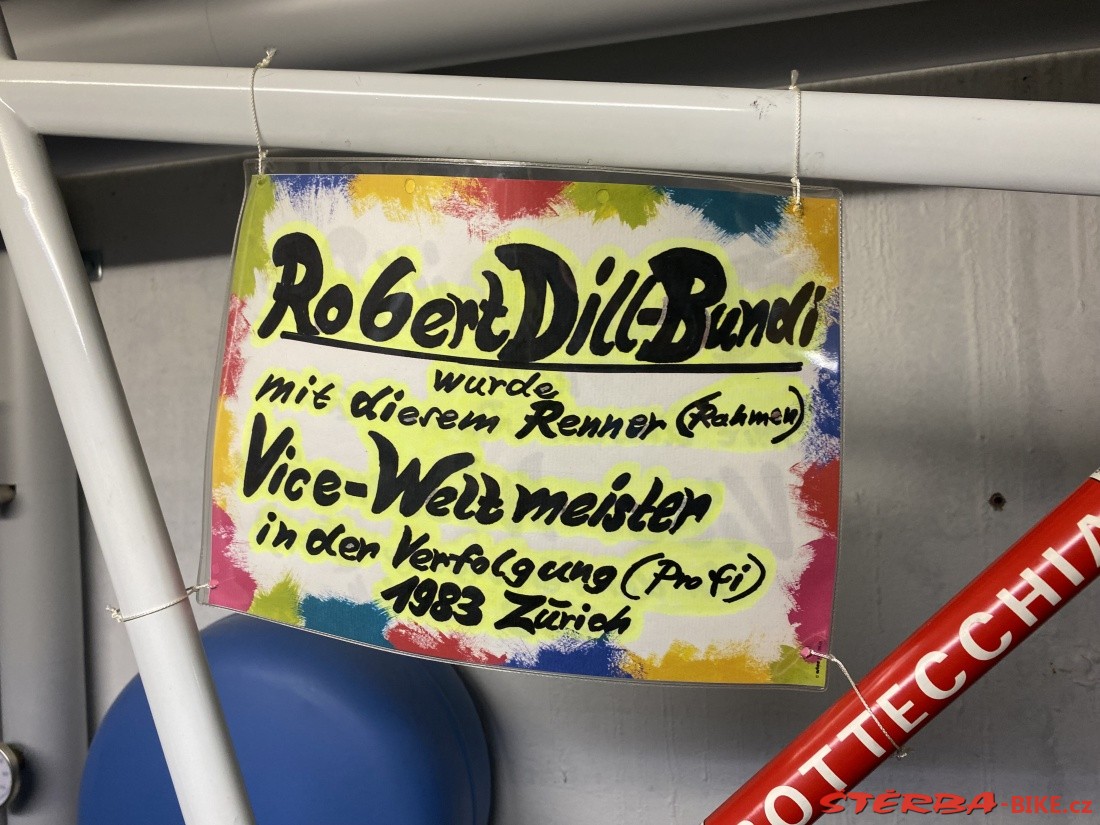 Robert Dill-Bundi
wurde
mit diesem Renner (Rahmen)
Vice-Weltmeister
in der Verfolgung (Profi)
1983 Zürich
OTTECCHIA
STERBA-BIKE.cz